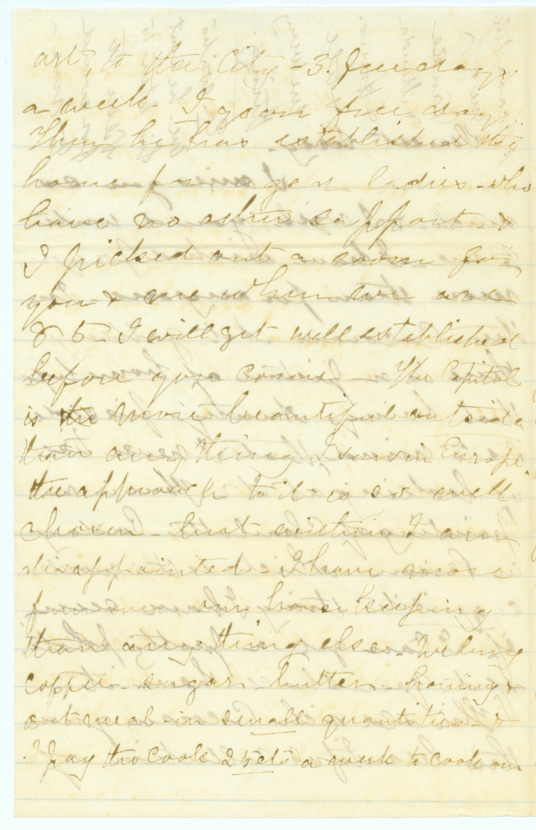 art, to the City - 3. free days
a week. I go on free days.
Then he has established
home for aged ladies - who
have no other support &
I picked out a room for
you & me when we are
85 - I will get well established
before you come - The Capitol
is the more beautiful outside
than any thing I saw in Europe.
the approach to it is so well
chosen - but within I am
disappointed - I have
our house keeping
than anything else. We buy
coffee - sugar - butter - honey &
oatmeal in small quantities &
I pay the cook 25 cts a week to cook our